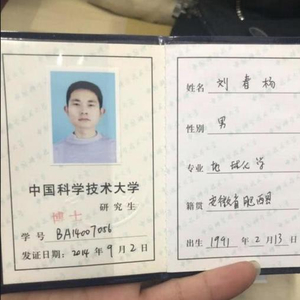 中国科学技术大学
研究生
博士
学号 BA14007056
发证日期: 2014年9月2日
姓名 刘春杨
性别 男
专业 地球化学
籍贯 安徽省肥西县
出生 1991年2月13日